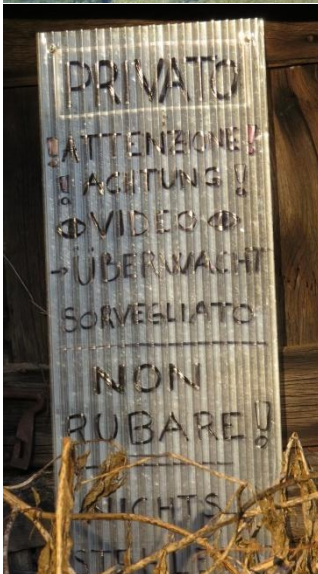 PRIVATO
!ATTENZIONE!
! ACHTUNG !
VIDEO
→ ÜBERWACHT
SORVEGLIATO
NON
RUBARE!
NICHTS